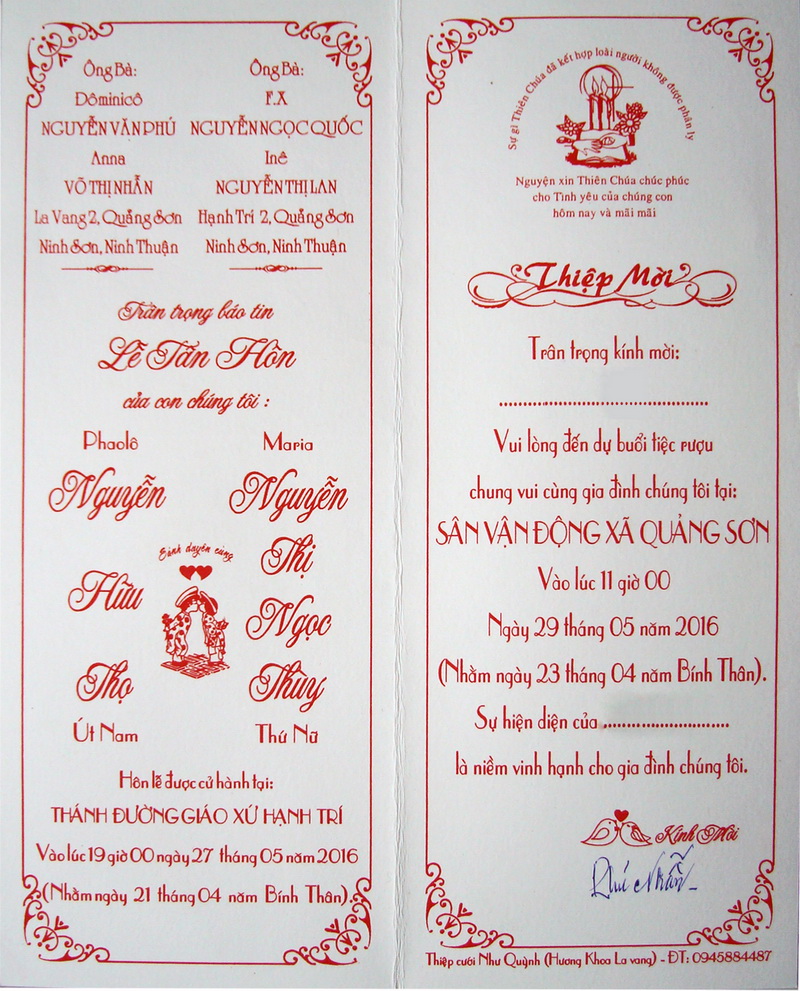 Ông Bà:
Đôminicô
NGUYỄN VĂN PHÚ
Anna
VÕ THỊ NHẪN
La Vang 2, Quảng Sơn
Ninh Sơn, Ninh Thuận
Ông Bà:
F.X
NGUYỄN NGỌC QUỐC
Inê
NGUYỄN THỊ LAN
Hạnh Trí 2, Quảng Sơn
Ninh Sơn, Ninh Thuận
Trân trọng báo tin
Lễ Tân Hôn
của con chúng tôi :
Phaolô
Nguyễn
Hữu
Thọ
Út Nam
Sánh duyên cùng
Maria
Nguyễn
Thị
Ngọc
Thùy
Thứ Nữ
Hôn lễ được cử hành tại:
THÁNH ĐƯỜNG GIÁO XỨ HẠNH TRÍ
Vào lúc 19 giờ 00 ngày 27 tháng 05 năm 2016
(Nhằm ngày 21 tháng 04 năm Bính Thân).
Sự gì Thiên Chúa đã kết hợp loài người không được phân ly
Nguyện xin Thiên Chúa chúc phúc
cho Tình yêu của chúng con
hôm nay và mãi mãi
Thiệp Mời
Trân trọng kính mời:
.....................................................
Vui lòng đến dự buổi tiệc rượu
chung vui cùng gia đình chúng tôi tại:
SÂN VẬN ĐỘNG XÃ QUẢNG SƠN
Vào lúc 11 giờ 00
Ngày 29 tháng 05 năm 2016
(Nhằm ngày 23 tháng 04 năm Bính Thân).
Sự hiện diện của ..............................
là niềm vinh hạnh cho gia đình chúng tôi.
Kính Mời
Phú Nhẫn
Thiệp cưới Như Quỳnh (Hương Khoa La vang) - ĐT: 0945884487